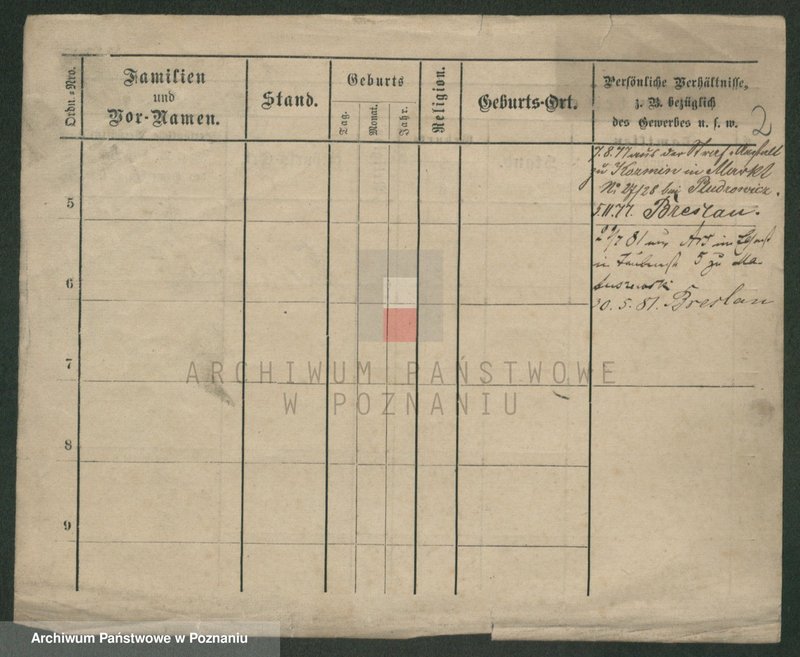 Ordn.=Nro.
Familien
und
Vor-Namen.
Stand.
Geburts
Tag.
Monat.
Jahr.
Religion.
Geburts-Ort.
Persönliche Verhältnisse,
z. B. bezüglich
des Gewerbes u. s. w.
2
7.8.77 aus der Straf-Anstalt
zu Kozmin in Markt
No 27/28 bei Pludrowicz.
5.11.77. Breslau.
5
81 aus im
in 5 zu Ma-
tuszewski
30.5.81. Breslau
6
7
8
9
ARCHIWUM PAŃSTWOWE
W POZNANIU
Archiwum Państwowe w Poznaniu